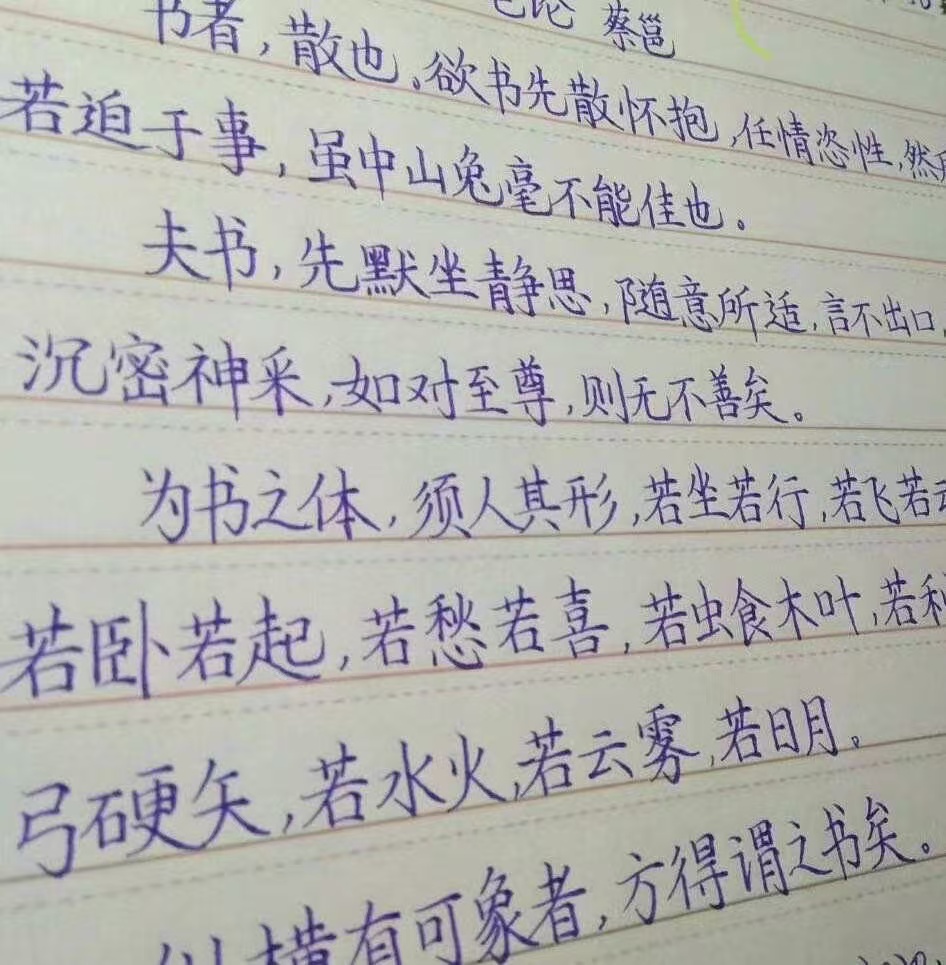 论 蔡邕
书者，散也。欲书先散怀抱，任情恣性，然
若迫于事，虽中山兔毫不能佳也。
夫书，先默坐静思，随意所适，言不出口
沉密神采，如对至尊，则无不善矣。
为书之体，须人其形，若坐若行，若飞若
若卧若起，若愁若喜，若虫食木叶，若利
弓硬矢，若水火，若云雾，若日月。
纵横有可象者，方得谓之书矣。